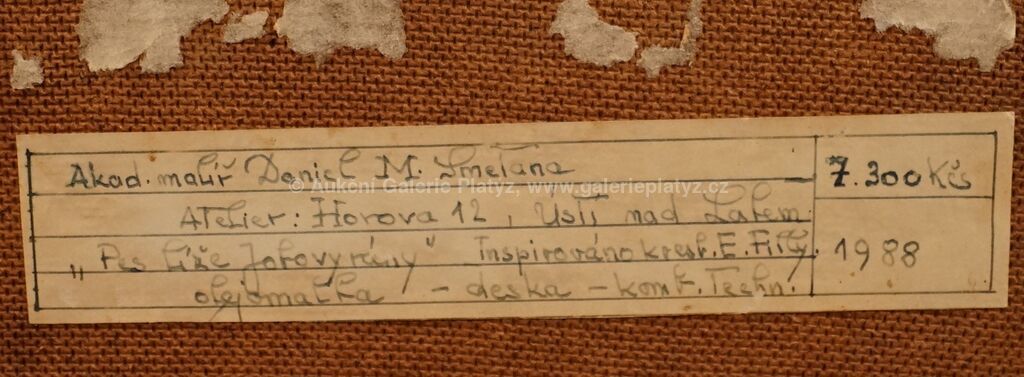 Akad. malíř Daniel M. Smetana
7.300 Kčs
© Aukční Galerie Platýz, www.galerieplatyz.cz
Atelier: Horova 12, Ústí nad Labem
„Pes líže Jobovy rány" Inspirováno kresb. E. Filly.
1988
olejomalba - deska - komb. Techn.